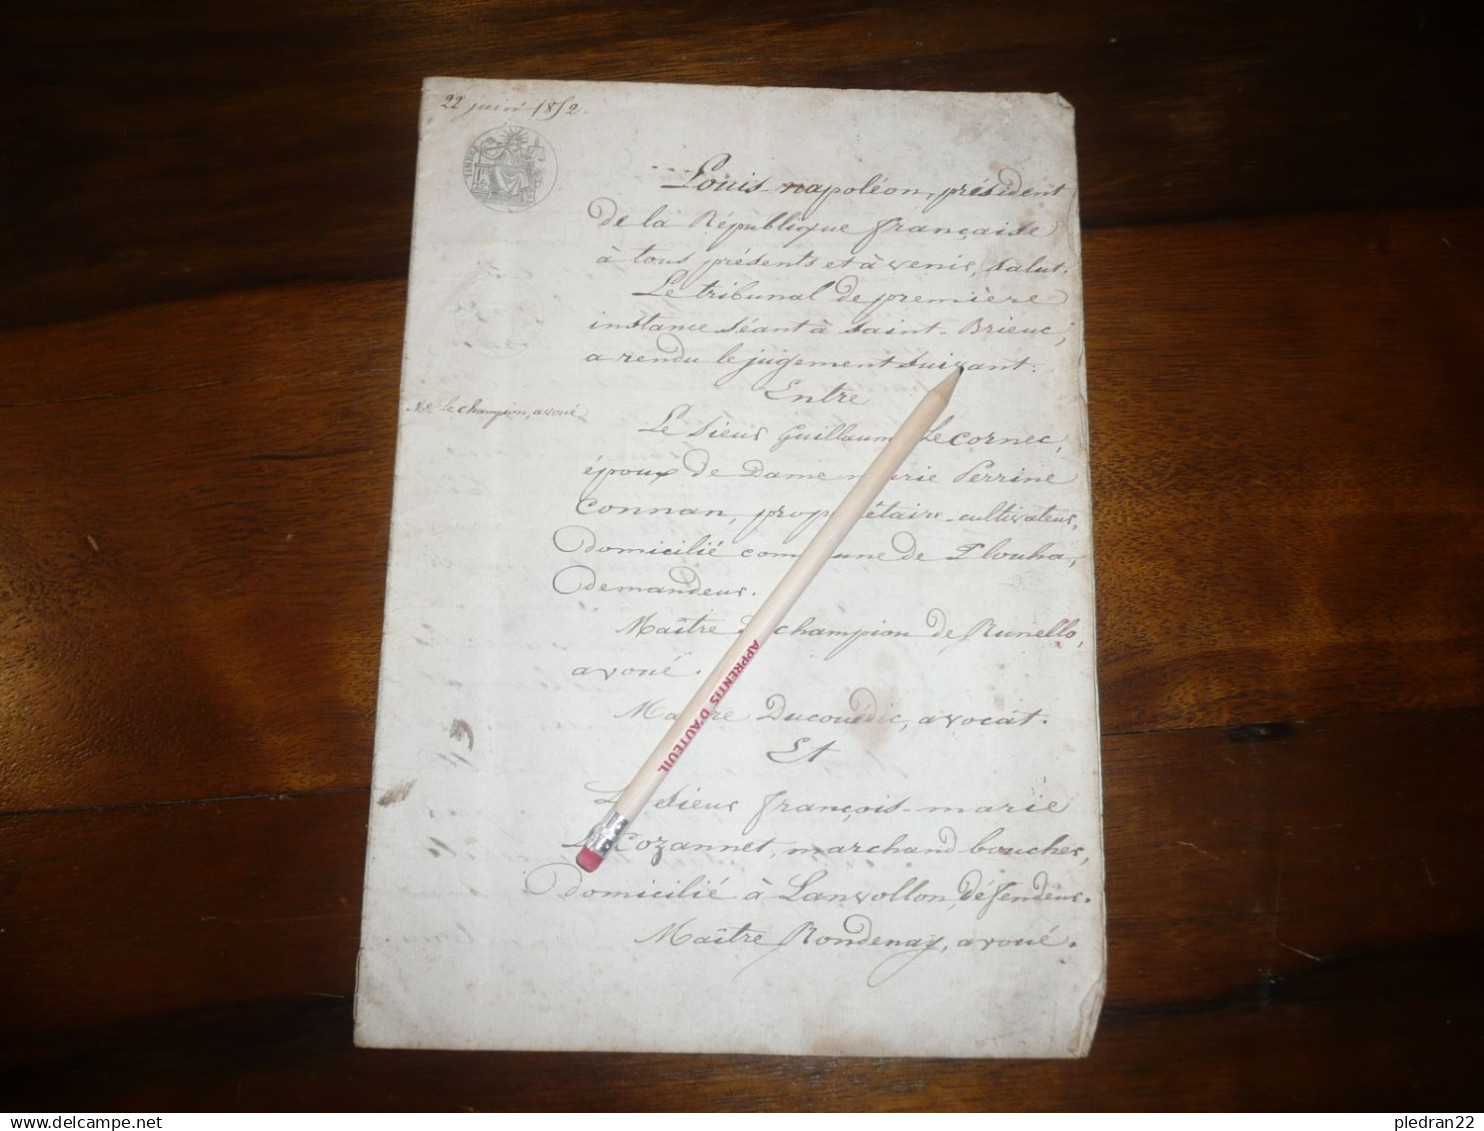 22 juin 1852.
TIMBRE
Louis-napoléon, président
de la République française
à tous présents et à venir, salut.
Le tribunal de première
instance séant à saint-Brieuc,
a rendu le jugement suivant.
Entre
Me Le champion, avoué
Le sieur Guillaum Lecornec,
époux de Dame marie Perrine
Connan, propriétaire-cultivateur,
Domicilié commune de Plouha,
Demandeur.
Maître Lechampion de Runello,
avoué.
Maître Ducouëdic, avocat.
Et
Le sieur françois-marie
Le Cozannet, marchand boucher,
Domicilié à Lanvollon, défendeur.
Maître Rondenay, avoué.
APPRENTIS D'AUTEUIL
delcampe.net
pledran22